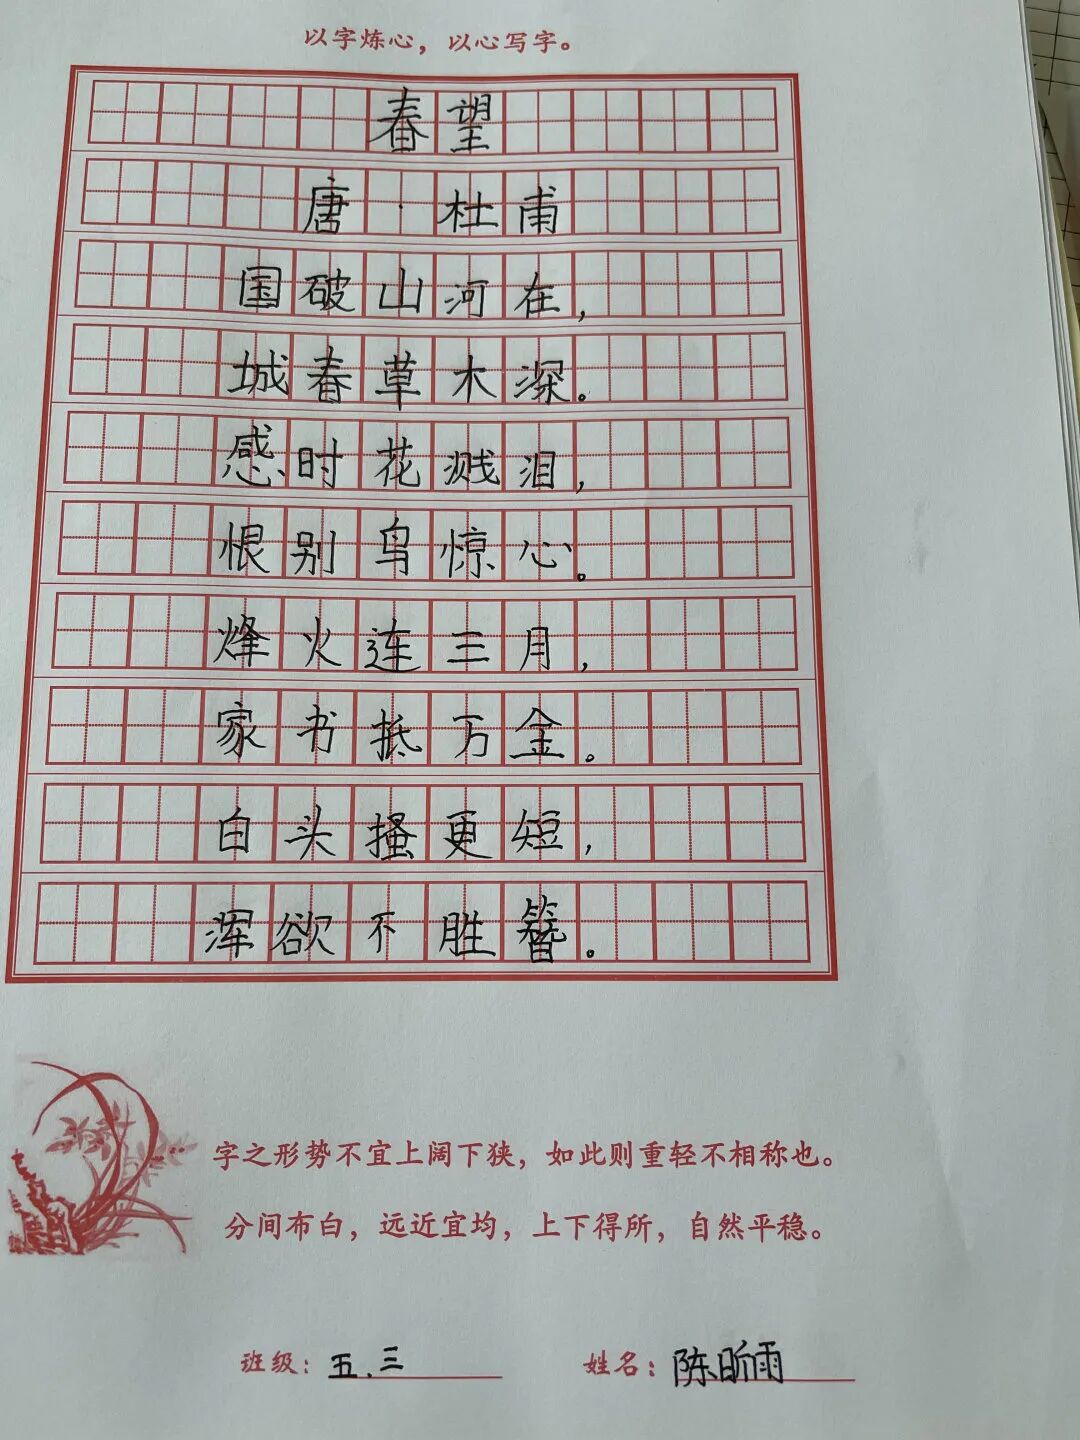 以字炼心，以心写字。
春望
唐·杜甫
国破山河在，
城春草木深。
感时花溅泪，
恨别鸟惊心。
烽火连三月，
家书抵万金。
白头搔更短，
浑欲不胜簪。
字之形势不宜上阔下狭，如此则重轻不相称也。
分间布白，远近宜均，上下得所，自然平稳。
班级：五.三 姓名：陈昕雨